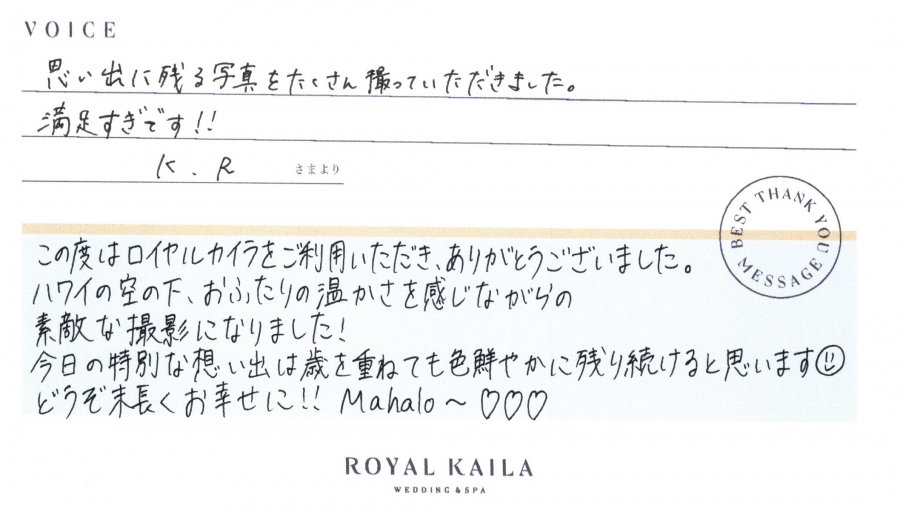 VOICE
思い出に残る写真をたくさん撮っていただきました。
満足すぎです!!
K.R さまより
BEST THANK YOU MESSAGE
この度はロイヤルカイラをご利用いただき、ありがとうございました。
ハワイの空の下、おふたりの温かさを感じながらの
素敵な撮影になりました!
今日の特別な想い出は歳を重ねても色鮮やかに残り続けると思います☺
どうぞ末長くお幸せに!! Mahalo~♡♡♡
ROYAL KAILA
WEDDING & SPA